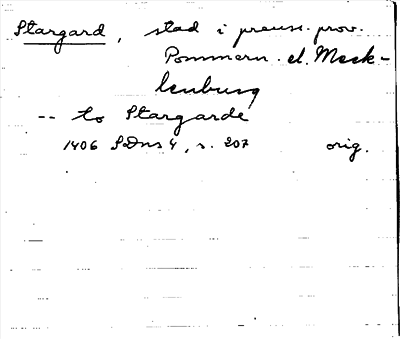 Stargard, stad i preuss. prov.
Pommern el. Meck-
lenburg
-- to Stargarde
1406 SDns 4, s. 207 orig.